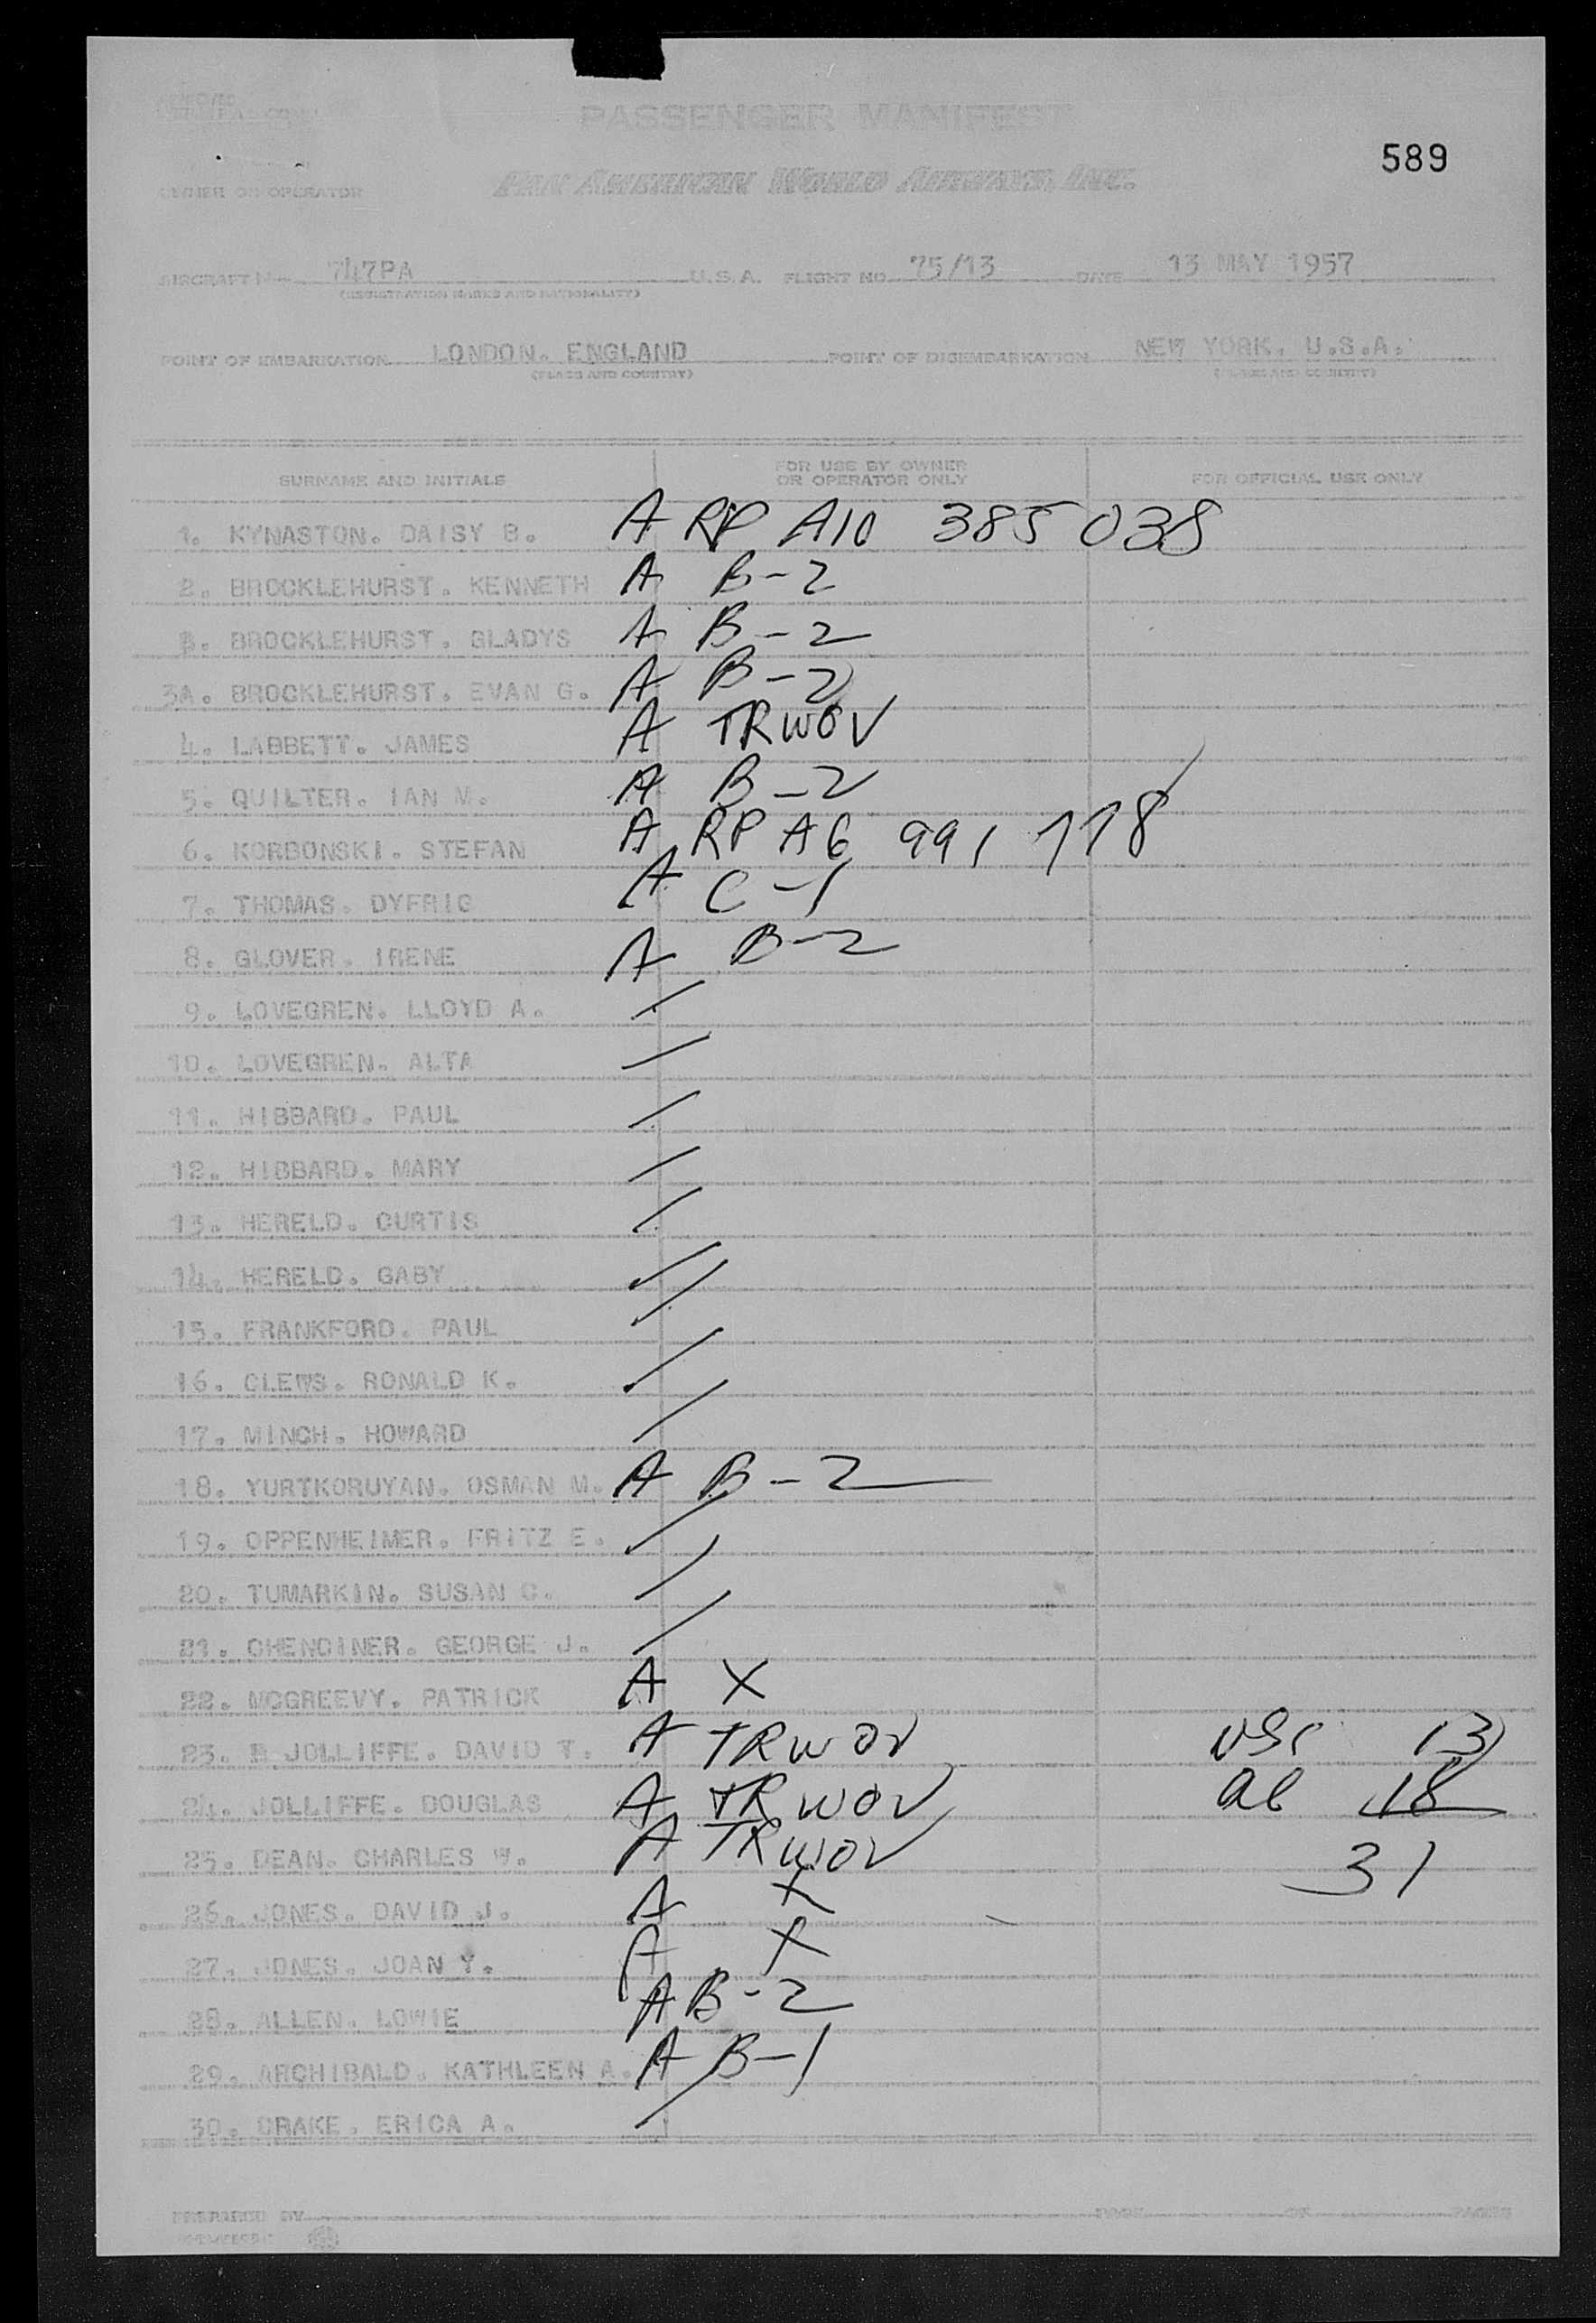 PASSENGER MANIFEST
589
OWNER OR OPERATOR PAN AMERICAN WORLD AIRWAYS, INC.
AIRCRAFT N- 747PA U.S.A. FLIGHT NO. 75/13 DATE 13 MAY 1957
(REGISTRATION MARKS AND NATIONALITY)
POINT OF EMBARKATION LONDON. ENGLAND POINT OF DISEMBARKATION NEW YORK. U.S.A.
(PLACE AND COUNTRY) (PLACE AND COUNTRY)
SURNAME AND INITIALS FOR USE BY OWNER OR OPERATOR ONLY FOR OFFICIAL USE ONLY
1. KYNASTON. DAISY B. A RP A10 385 038
2. BROCKLEHURST. KENNETH A B-2
3. BROCKLEHURST. GLADYS A B-2
3A. BROCKLEHURST. EVAN G. A B-2
4. LABBETT. JAMES A TRWOV
5. QUILTER. IAN M. A B-2
6. KORBONSKI. STEFAN A RP A6 991 118
7. THOMAS. DYFRIG A C-1
8. GLOVER. IRENE A B-2
9. LOVEGREN. LLOYD A. /
10. LOVEGREN. ALTA /
11. HIBBARD. PAUL /
12. HIBBARD. MARY /
13. HERELD. CURTIS /
14. HERELD. GABY /
15. FRANKFORD. PAUL /
16. CLEWS. RONALD K. /
17. MINCH. HOWARD /
18. YURTKORUYAN. OSMAN M. A B-2
19. OPPENHEIMER. FRITZ E. /
20. TUMARKIN. SUSAN C. /
21. CHENCINER. GEORGE J. /
22. MCGREEVY. PATRICK A X
23. JOLLIFFE. DAVID T. A TRWOV USC 13
24. JOLLIFFE. DOUGLAS A TRWOV al 18
25. DEAN. CHARLES W. A TRWOV 31
26. JONES. DAVID J. A X
27. JONES. JOAN Y. A X
28. ALLEN. LOWIE A B-2
29. ARCHIBALD. KATHLEEN A. A B-1
30. DRAKE. ERICA A. /
PREPARED BY PAGE OF PAGES